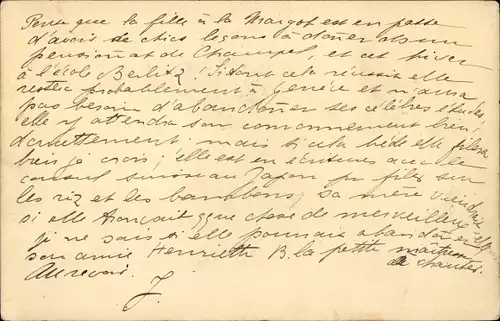 Pense que la fille à la Margot est en passe
d'avoir de chics leçons à donner ds un
pensionat de Champel, et cet hiver
à l'école Berlitz! Si tout cela réussit elle
restera probablement à Genève et n'aura
pas besoin d'abandonner ses célèbres études,
elle y attendra son couronnement bien
douettement; mais si cela bède elle filera
bien je crois; elle est en écritures avec le
consul suisse au Japon pr filer sur
les riz et les bambous; sa mère viendrait
si elle trouvait qque chose de merveilleux
je ne sais si elle pourrait abandonner
son amie Henriette B. la petite maîtresse
de chants.
Au revoir.
J.